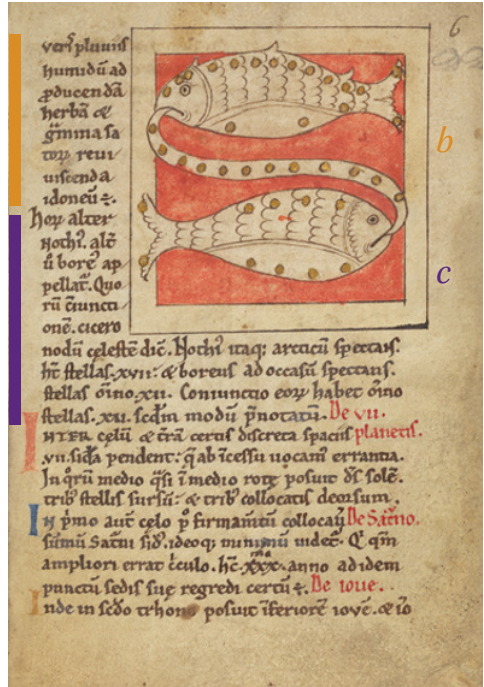 6
verꝰ pluuiis
humidū ad
ꝓducendā
herbā &
gͥmina sa
toꝝ reui
uiscenda
idoneū ÷.
hoꝝ alter
Nothꝰ. alt̄
ū boreꝰ ap
pellat̄. Quo
rū c̄iuncti
onē. cicero
nodū celestē dic̄. Nothꝰ itaq; arcticū spectans.
ht̄ stellas .xvii. & boreus ad occasū spectans.
stellas oīno .xii. Coniunctio eoꝝ habet oīno
stellas .xii. scdm modū p̄notatū. De vii.
INTER celū & t̄rā certis discreta spaciis planetis.
.vii. sid̄a pendent. q̄ ab īcessu uocam̄ errantia.
In qͦrū medio qͣsi ī medio rote posuit dꝰ solē.
tribꝰ stellis sursū. & tribꝰ collocatis deorsum.
IN pͥmo aut̄ celo p̄ firmam̄tū collocauit De Sat̄no.
sūmū Sat̄ni sidꝰ. ideoq; minimū uidet̄. Qͥ qm̄
ampliori errat c̄culo. hͨ .xxx.mo anno ad idem
punctū sedis sue regredi certū ÷. De ioue.
Inde in scdo trhono posuit īferiorē iovē. & iō
b
c